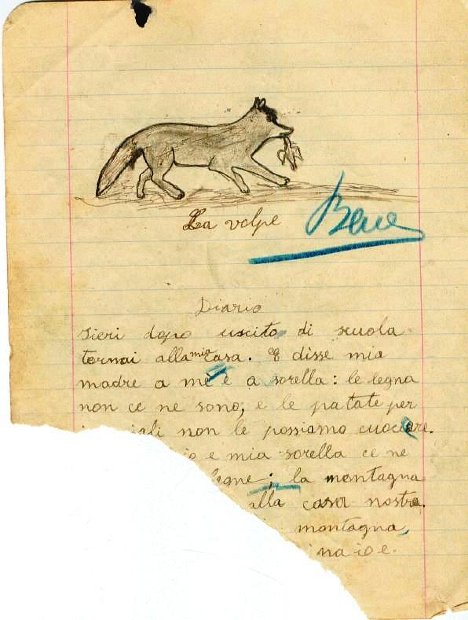 La volpe
Bene
Diario
Ieri dopo uscito di scuola
tornai alla mia casa. E disse mia
madre a me e a sorella: le legna
non ce ne sono, e le patate per
i maiali non le possiamo cuocere.
io e mia sorella ce ne
legne; la montagna
alla casa nostra.
montagna,
na io e